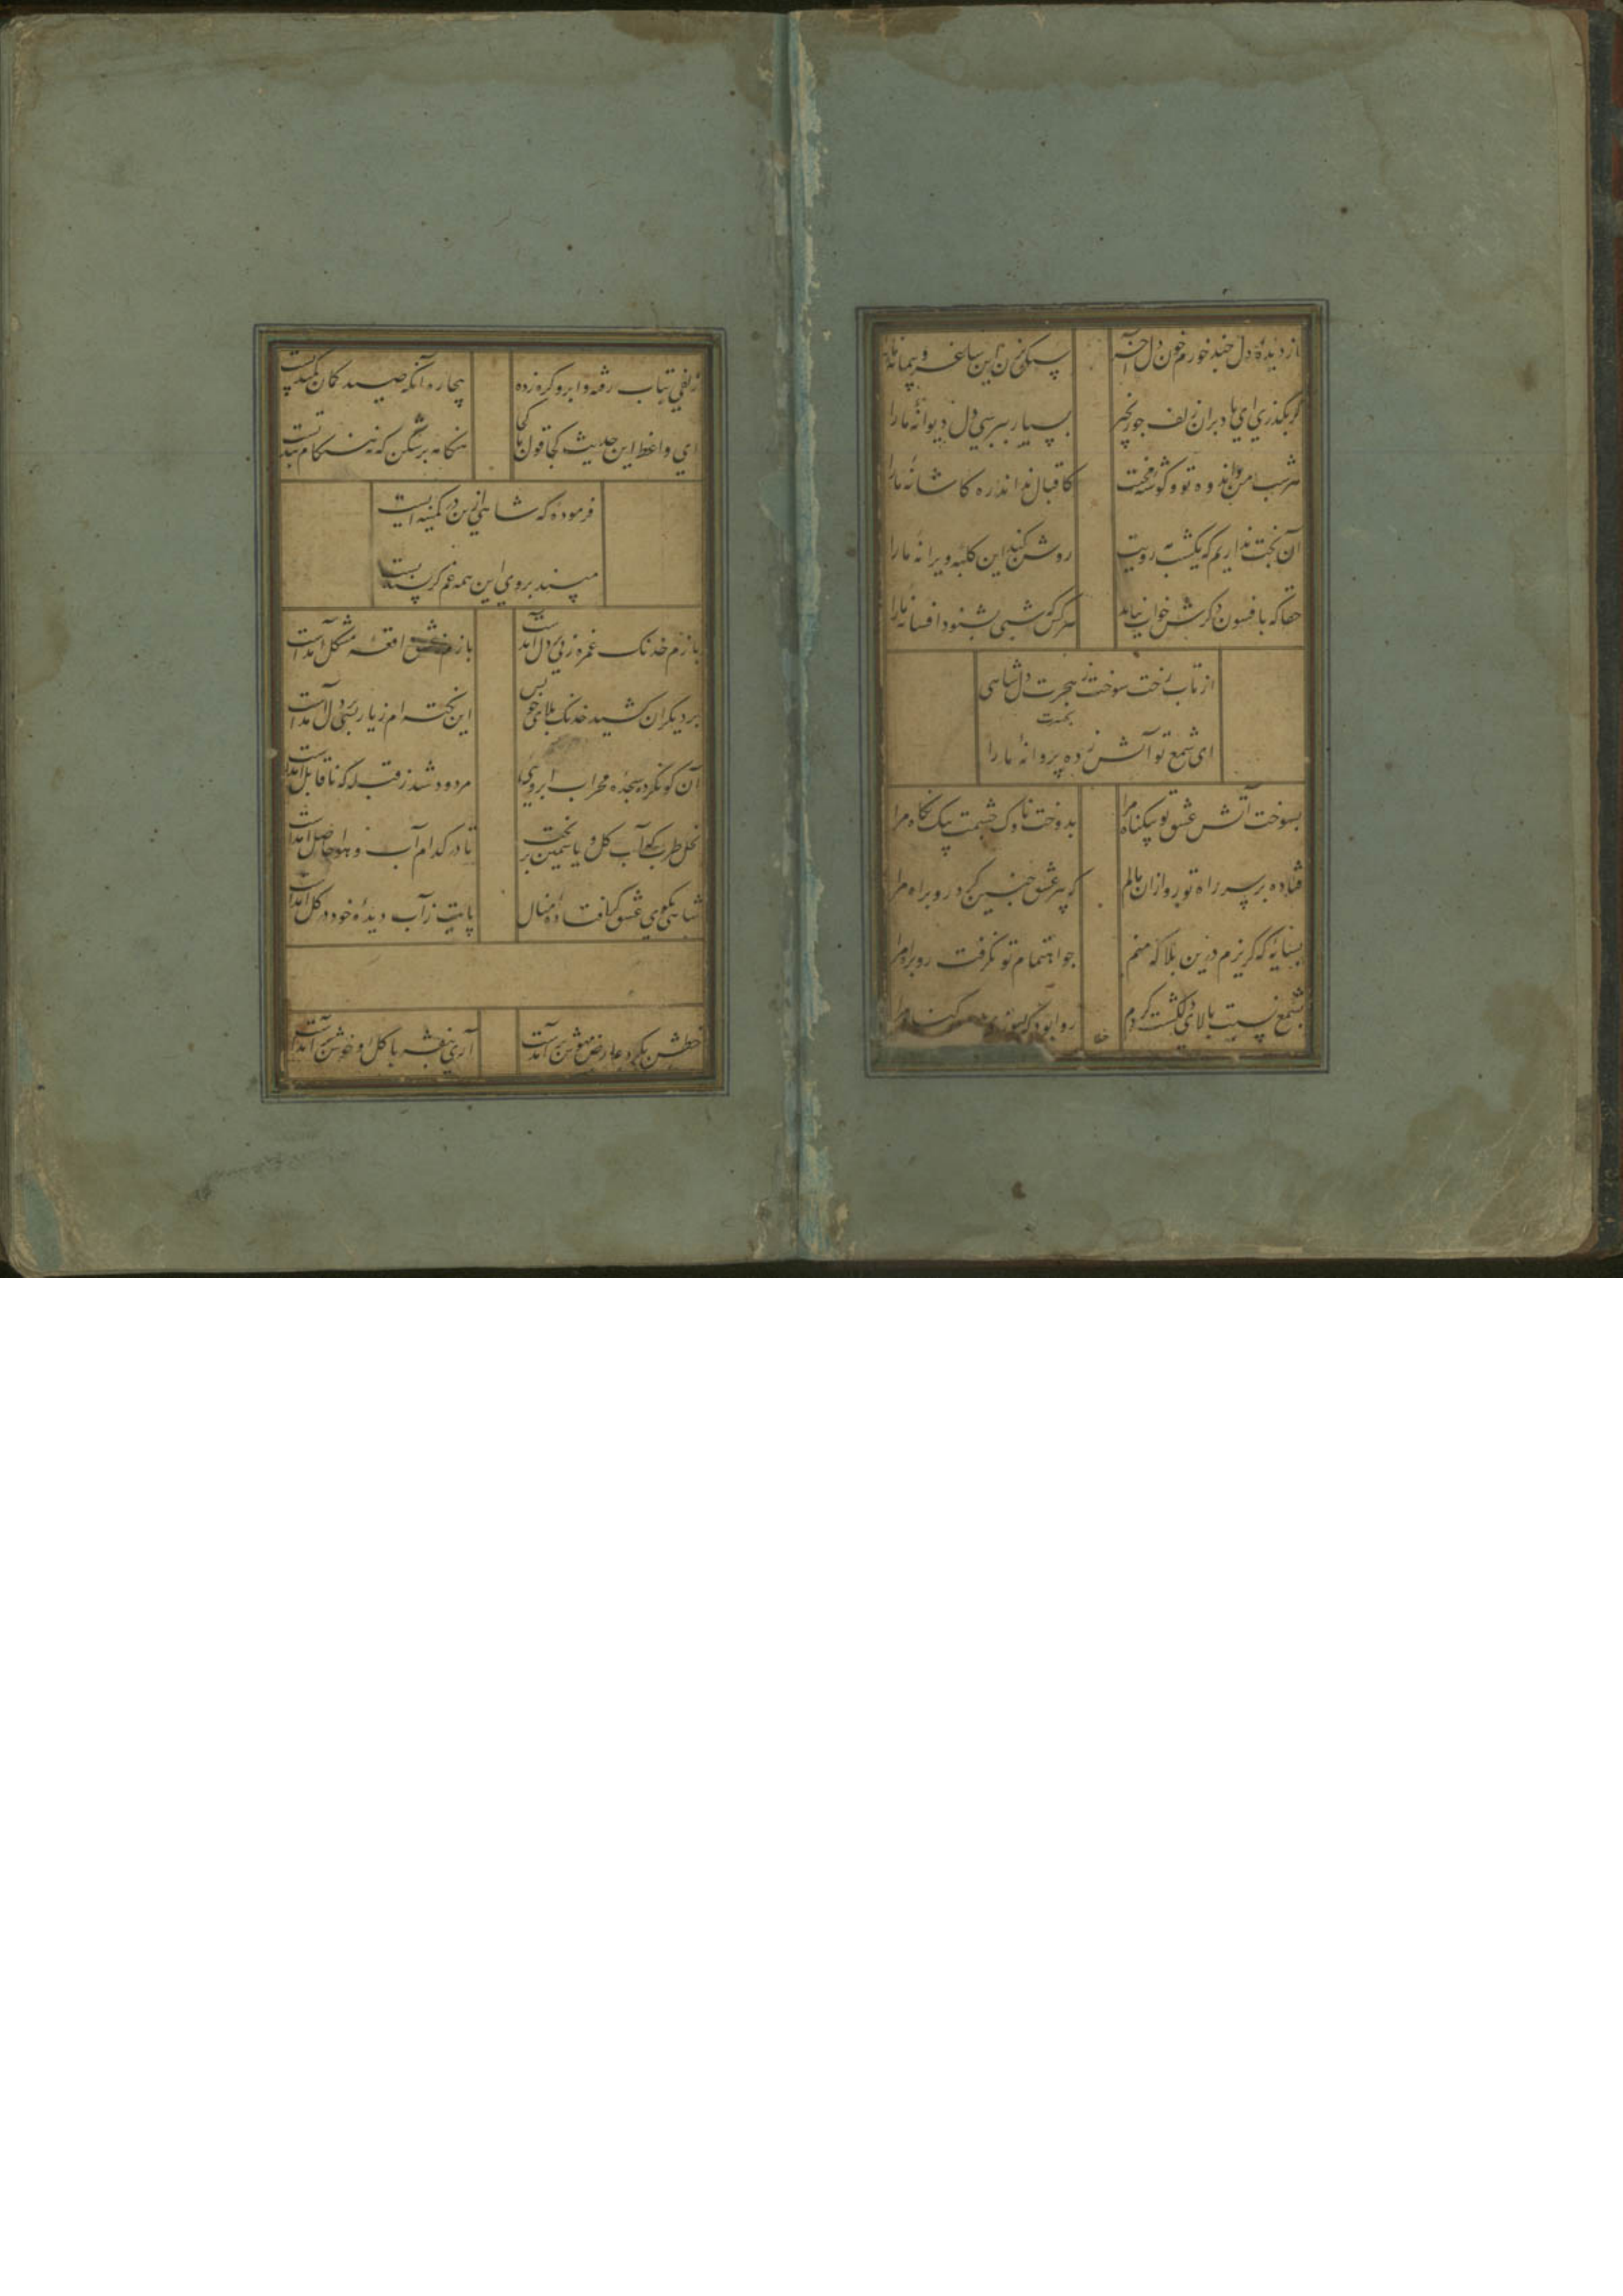 از دیده و دل چند خورم خون دل آخر
سنکی زن این ساغر و پیمانه ما را
کر بکذری ای باد بران زلف چو زنجیر
بسیار بپرسی دل دیوانه ما را
هر شب من و اندوه تو و کوشه محنت
کاقبال نداند ره کاشانه ما را
آن بخت نداریم که یکشب مه رویت
روشن کند این کلبه ویرانه ما را
حقا که بافسون دکرش خواب نیاید
هر کس که شبی بشنود افسانه ما را
از تاب رخت سوخت ز هجرت دل شاهی
ای شمع تو آتش زده پروانه ما را
بسوخت آتش عشق تو بیکناه مرا
بدوخت ناوک چشمت بیک نکاه مرا
فتاده بر سر راه تو رو ازان مالم
که پیر عشق چنین کرد رو براه مرا
بسایه که کریزم درین بلا که منم
چو اهتمام تو نکرفت در پناه مرا
بشمع نسبت بالای دلکشت کردم
روا بود که بسوزی بدین کناه مرا
زلفی بتاب رفته و ابرو کره زده
بیچاره آنکه صید کمان و کمند تست
ای واعظ این حدیث کجا قول ما کجا
هنکامه برشکن که نه هنکام پند تست
فرموده که شاهی ازین در کمینه ایست
مپسند بروی این همه غم کر پسند تست
بازم خدنک غمزه زنی بر دل آمدست
بازم ز عشق واقعه مشکل آمدست
بر دیکران کشید خدنک بلای چو بس
این نکته ام ز یار بسی بر دل آمدست
آن کو نکرد سجده محراب ابروی
مردود شد ز قبله که ناقابل آمدست
نخل طرب که آب کل و یاسمین بریخت
تا در کدام آب و هوا حاصل آمدست
شاهی بکوی عشق کر افتاده منال
پایت ز آب دیده خود در کل آمدست
خطش بکرد عارض مهوش برآمدست
آری بنفشه با کل او خوش برآمدست